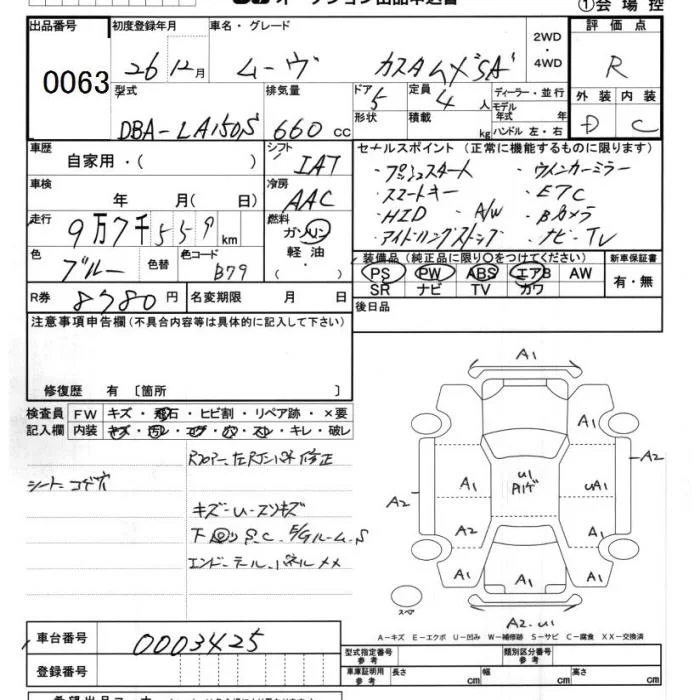 オークション出品申込書
①会場控
出品番号 初度登録年月 車名・グレード 評価点
0063 26年12月 ムーヴ カスタムX"SA" 2WD・4WD R
型式 排気量 ドア 定員 ディーラー・並行 外装 内装
DBA-LA150S 660cc 5 4人 モデル年式 年式 D C
形状 積載 kg ハンドル 左・右
車歴 シフト セールスポイント (正常に機能するものに限ります)
自家用・( ) IAT ・プッシュスタート ・ウインカーミラー
車検 冷房 ・スマートキー ・ETC
年 月( 日) AAC ・HID ・A/W ・Bカメラ
走行 燃料 ・アイドリングストップ ・ナビ・TV
9万7千559km ガソリン
色 色替 色コード 軽油 装備品(純正品に限り○をつけてください) 新車保証書
ブルー B79 ・( ) PS PW ABS エアB AW 有・無
SR ナビ TV カワ
R券 8780円 名変期限 月 日 後日品
注意事項申告欄(不具合内容等は具体的に記入して下さい)
修復歴 有〔箇所 〕
検査員 FW キズ・飛石・ヒビ割・リペア跡・×要
記入欄 内装 キズ・汚レ・コゲ・穴・スレ・キレ・破レ
シート コゲ穴
キズ-U-スリキズ
下回りS.C. E/Gルーム-S
A1
A1
A2
U1
A1 UA1
A2
A2 A1
A1 A1 A1
A2-U1
スペア
A-キズ E-エクボ U-凹み W-補修跡 S-サビ C-腐食 XX-交換済
車台番号 0003425 型式指定番号 参考 類別区分番号 参考
登録番号 車庫証明用 参考 長さ cm 幅 cm 高さ cm